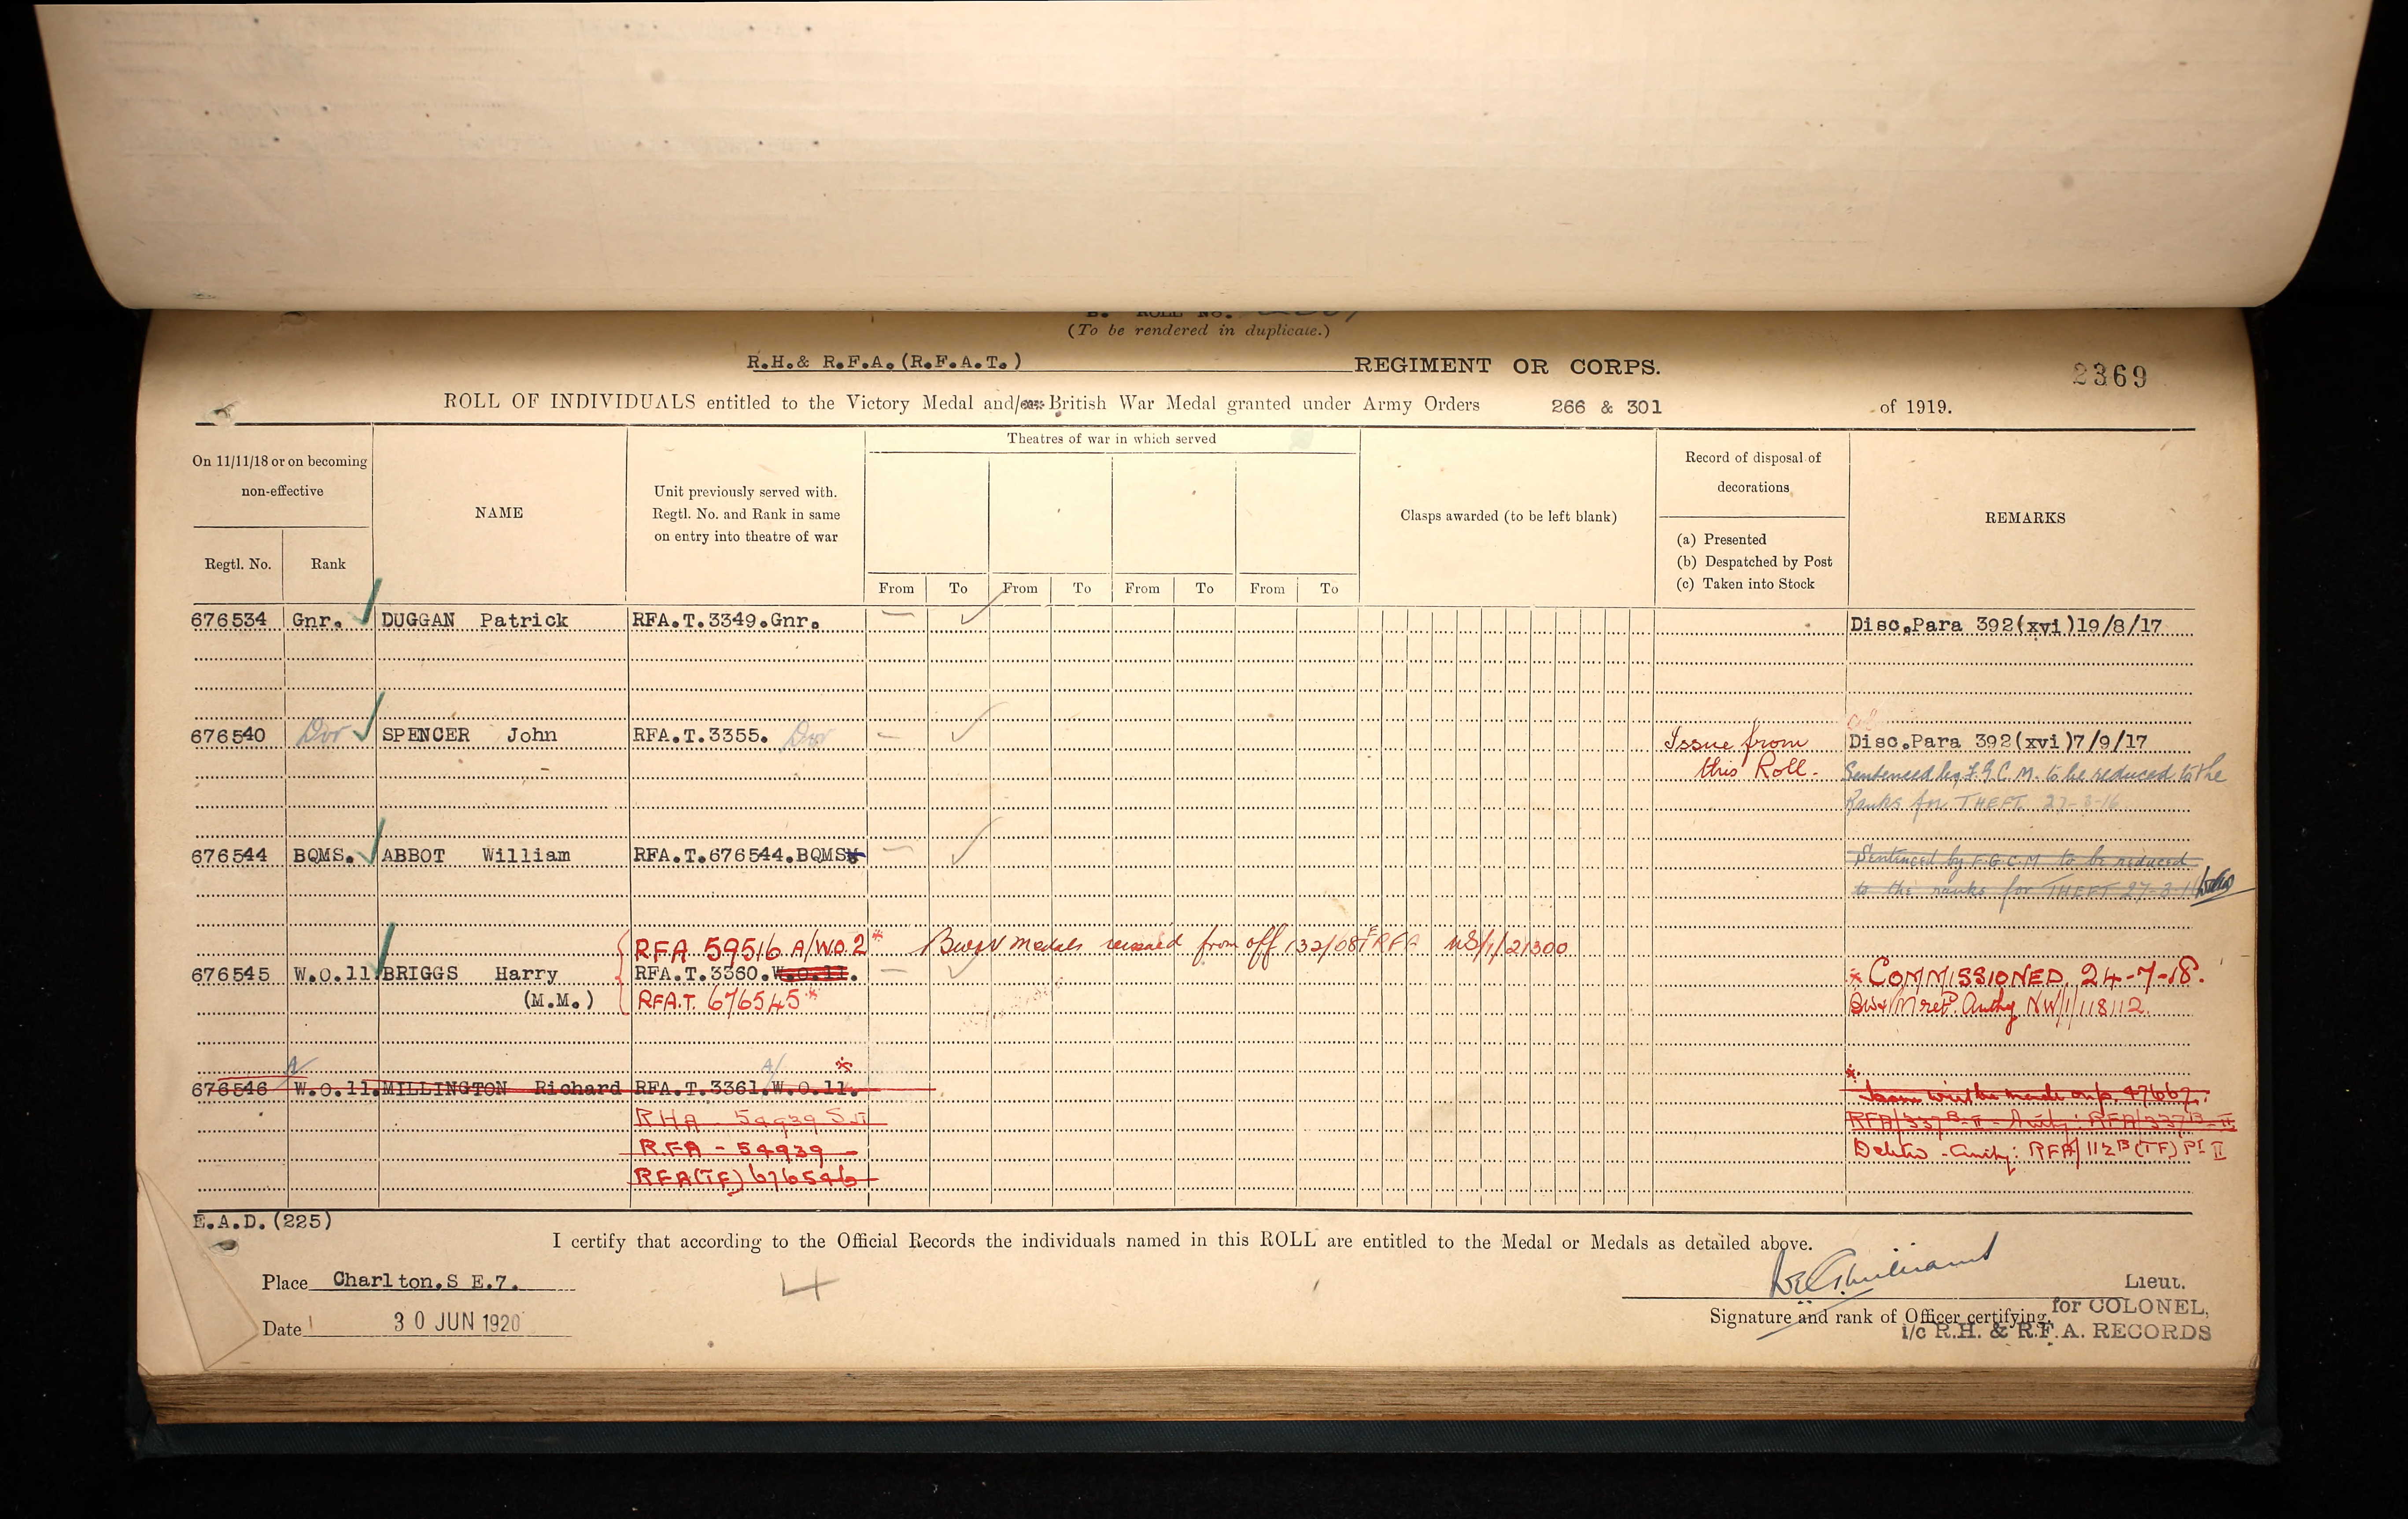 B. ROLL No.
(To be rendered in duplicate.)
R.H.& R.F.A.(R.F.A.T.) REGIMENT OR CORPS.
2369
ROLL OF INDIVIDUALS entitled to the Victory Medal and/or British War Medal granted under Army Orders 266 & 301 of 1919.
On 11/11/18 or on becoming
non-effective
Regtl. No.
Rank
NAME
Unit previously served with.
Regtl. No. and Rank in same
on entry into theatre of war
Theatres of war in which served
From To From To From To From To
Clasps awarded (to be left blank)
Record of disposal of
decorations
(a) Presented
(b) Despatched by Post
(c) Taken into Stock
REMARKS
676534 Gnr. DUGGAN Patrick RFA.T.3349.Gnr. Disc.Para 392(xvi)19/8/17
676540 Dvr SPENCER John RFA.T.3355. Dvr Issue from Disc.Para 392(xvi)7/9/17
this Roll. Sentenced by F.G.C.M. to be reduced to the
Ranks for THEFT. 27-3-16
676544 BQMS. ABBOT William RFA.T.676544.BQMS
Sentenced by F.G.C.M to be reduced
to the ranks for THEFT 27-3-1
RFA 59516 A/WO.2* medals from off 132/08 RFA /1/21300
676545 W.O.11. BRIGGS Harry RFA.T.3360.W.O.11. * COMMISSIONED. 24-7-18.
(M.M.) RFA.T. 676545* Authy NW/1/118112.
A/ A/ *
676546 W.O.11. MILLINGTON Richard RFA.T.3361.W.O.11. *
RHA - 54939 S
RFA - 54939
RFA(TF) 676546 RFA/112B(TF) Pt II
E.A.D.(225)
I certify that according to the Official Records the individuals named in this ROLL are entitled to the Medal or Medals as detailed above.
4
Place Charlton.S E.7.
Date 30 JUN 1920
Lieut.
Signature and rank of Officer certifying.
for COLONEL,
i/c R.H. & R.F.A. RECORDS